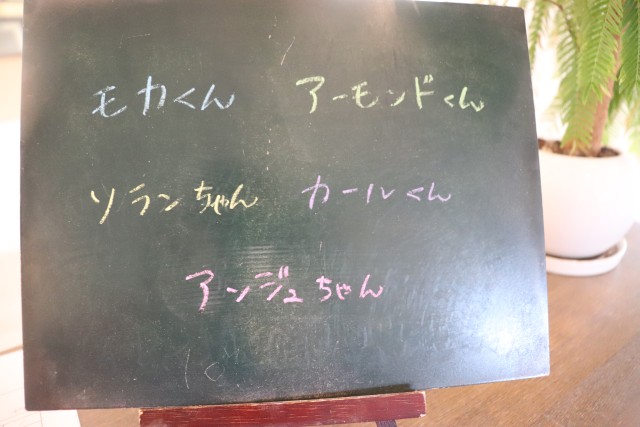 モカくん アーモンドくん
ソランちゃん カールくん
アンジュちゃん